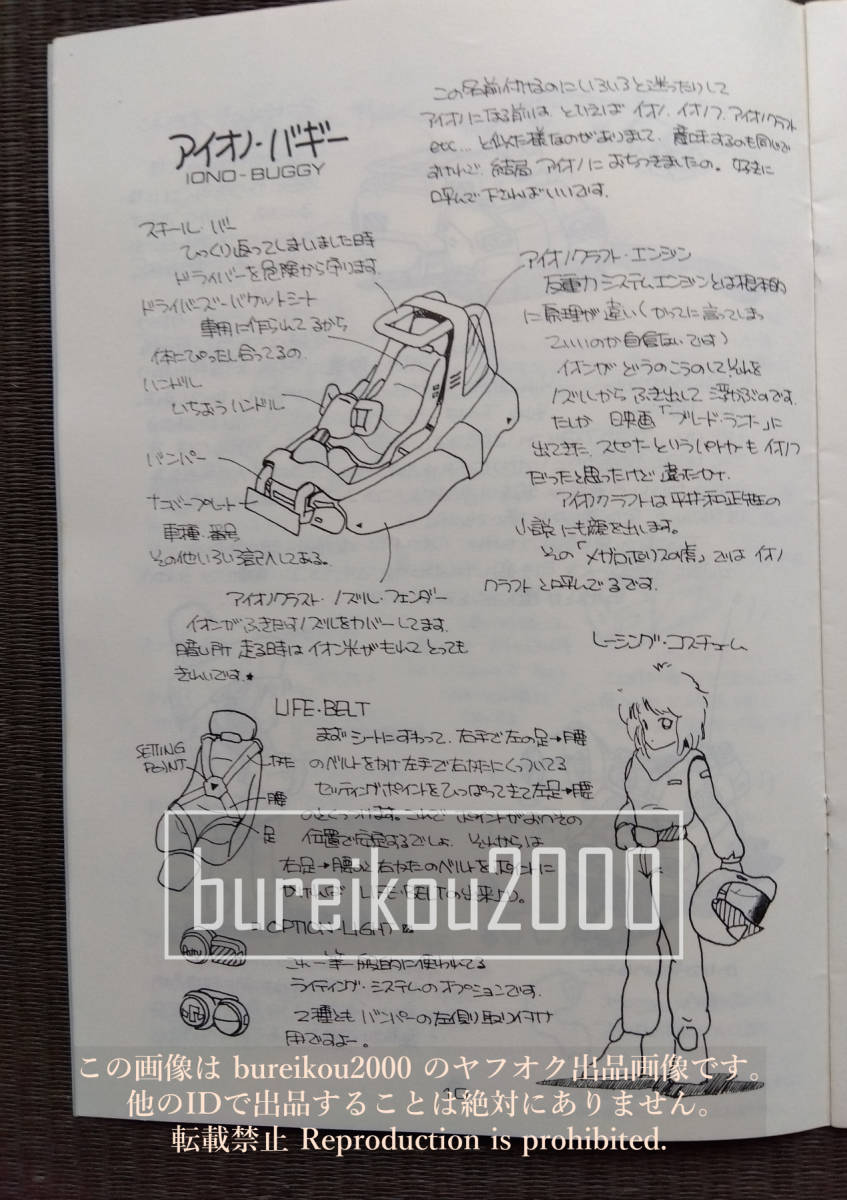 アイオノ・バギー
IONO-BUGGY
この名前付けるのにいろいろと迷ったりして
アイオノになる前は、といえば イオノ、イオノフ、アイオノクラフト
etc... と似た様なのがありまして、意味するのも同じで
すけれど、結局 アイオノに おちつきましたの。好きに
呼んで下さればいいです。
スチール・バー
ひっくり返ってしまいました時
ドライバーを危険から守ります。
ドライバーズ・バケットシート
専用に作られてるから
体にぴったし合ってるの。
ハンドル
いちおうハンドル
バンパー
ナンバープレート
車種・番号
その他いろいろ記入してある。
アイオノクラフト・エンジン
反重力システムエンジンとは根本的
に原理が違い(かってに言ってしまっ
ていいのか自信ないです)
イオンが どうのこうのして それを
ノズルから ふき出して 浮かぶのです。
たしか 映画「ブレード・ランナー」に
出てきた、スピナーというパトカーも イオノフ
だったと思ったけど 違ったかナ。
アイオノクラフトは 平井和正先生の
小説 にも顔を出します。
その「メガロポリスの虎」では イオノ
クラフト と呼んでるです。
アイオノクラフト・ノズル・フェンダー
イオンが ふきだすノズルをカバーしてます。
暗い所 走る時は イオン光がもれて とっても
きれいです。★
レーシング・コスチューム
LIFE・BELT
SETTING
POINT
肩
腰
足
まず シートにすわって、右手で左の足→腰
のベルトをかけ 左手で右かたにくっついてる
セッティングポイントをひっぱってきて左足→腰
のとくっつけます。これで ポイントがおへその
位置で安定するでしょ。それからは
右足→腰と右かたのベルトをポイントに
LIFE・BELTの出来上り。
OPTION LIGHT
これ一等 一般的に使われてる
ライティング・システムのオプションです。
2種とも バンパーの左側取り付け
用ですよー。
bureikou2000
この画像は bureikou2000 のヤフオク出品画像です。
他のIDで出品することは絶対にありません。
転載禁止 Reproduction is prohibited.